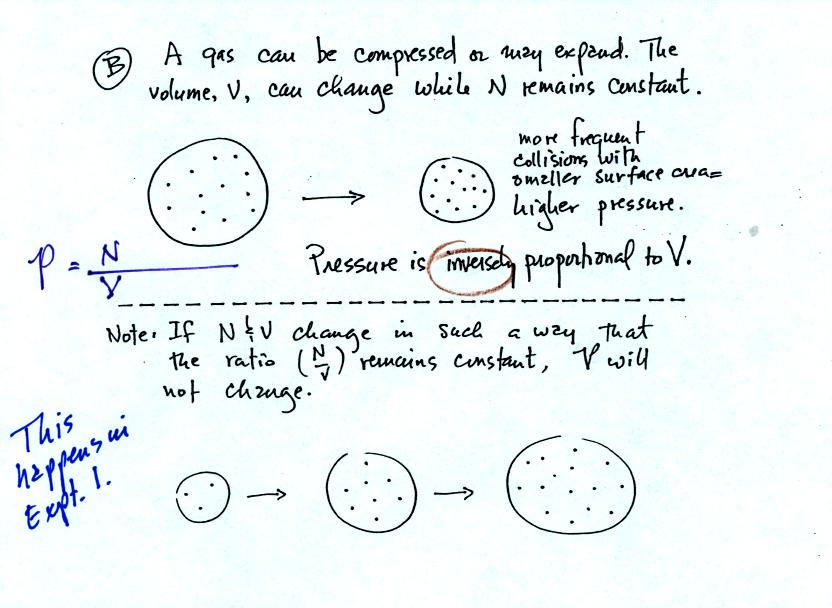 (B) A gas can be compressed or may expand. The
volume, V, can change while N remains constant.
more frequent
collisions with
smaller surface area =
higher pressure.
P = N / V
Pressure is inversely proportional to V.
Note: If N & V change in such a way that
the ratio (N/V) remains constant, P will
not change.
This
happens in
Expt. 1.